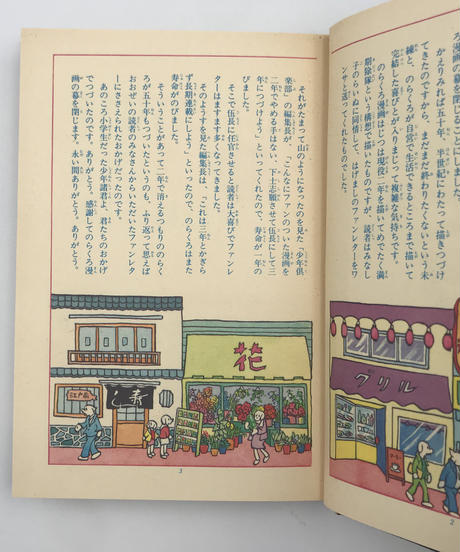 ろ漫画の幕を閉じることにしました。
かえりみれば五十年、半世紀にわたって描きつづけ
てきたのですから、まだまだ終わりたくないという未
練と、のらくろが自営で生活できるところまで描いて
完結した喜びとが入りまじって複雑な気持ちです。
のらくろ漫画はじつは現役二年を描いてめでたく満
期除隊という構想で描いたものですが、読者はみなし
子のらいぬに同情して、はげましのファンレターをワ
ンサと送ってくれたものでした。
グリル
2
それがたまって山のようになったのを見た「少年俱
楽部」の編集長が、「こんなにファンのついた漫画を
二年でやめる手はない、下士志願させて伍長にして三
年につづけよう」といってくれたので、寿命が一年の
びました。
そこで伍長に任官させると読者は大喜びでファンレ
ターはますます多くなってきました。
そのようすを見た編集長は、「これは三年とかぎら
ず長期連載にしよう」といったので、のらくろはまた
寿命がのびました。
そういうことがあって二年で消えるつもりののらく
ろが五十年もつづいたというのも、ふり返って思えば
おおぜいの読者のみなさんからいただいたファンレタ
ーにささえられたおかげだったのです。
あのころ小学生だった少年諸君よ、君たちのおかげ
でつづいたのです。ありがとう。感謝してのらくろ漫
画の幕を閉じます。永い間ありがとう。ありがとう。
花
寿し
江戸前
3